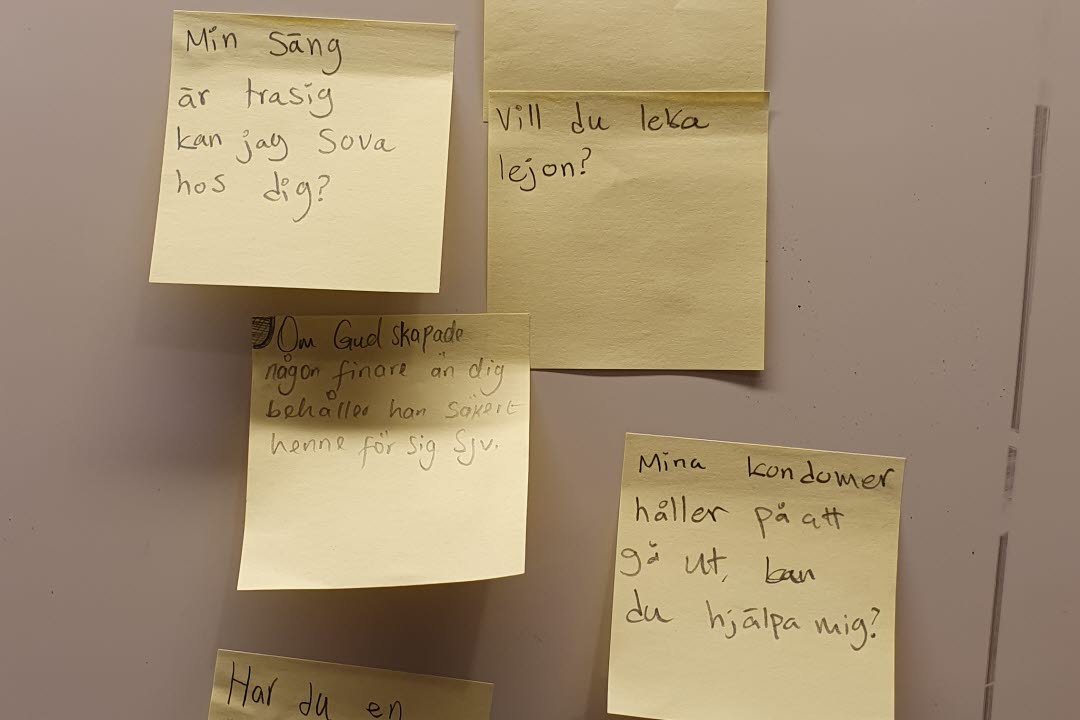 Min säng
är trasig
kan jag sova
hos dig?
Vill du leka
lejon?
Om Gud skapade
någon finare än dig
behåller han säkert
henne för sig sjv.
Mina kondomer
håller på att
gå ut, kan
du hjälpa mig?
Har du en